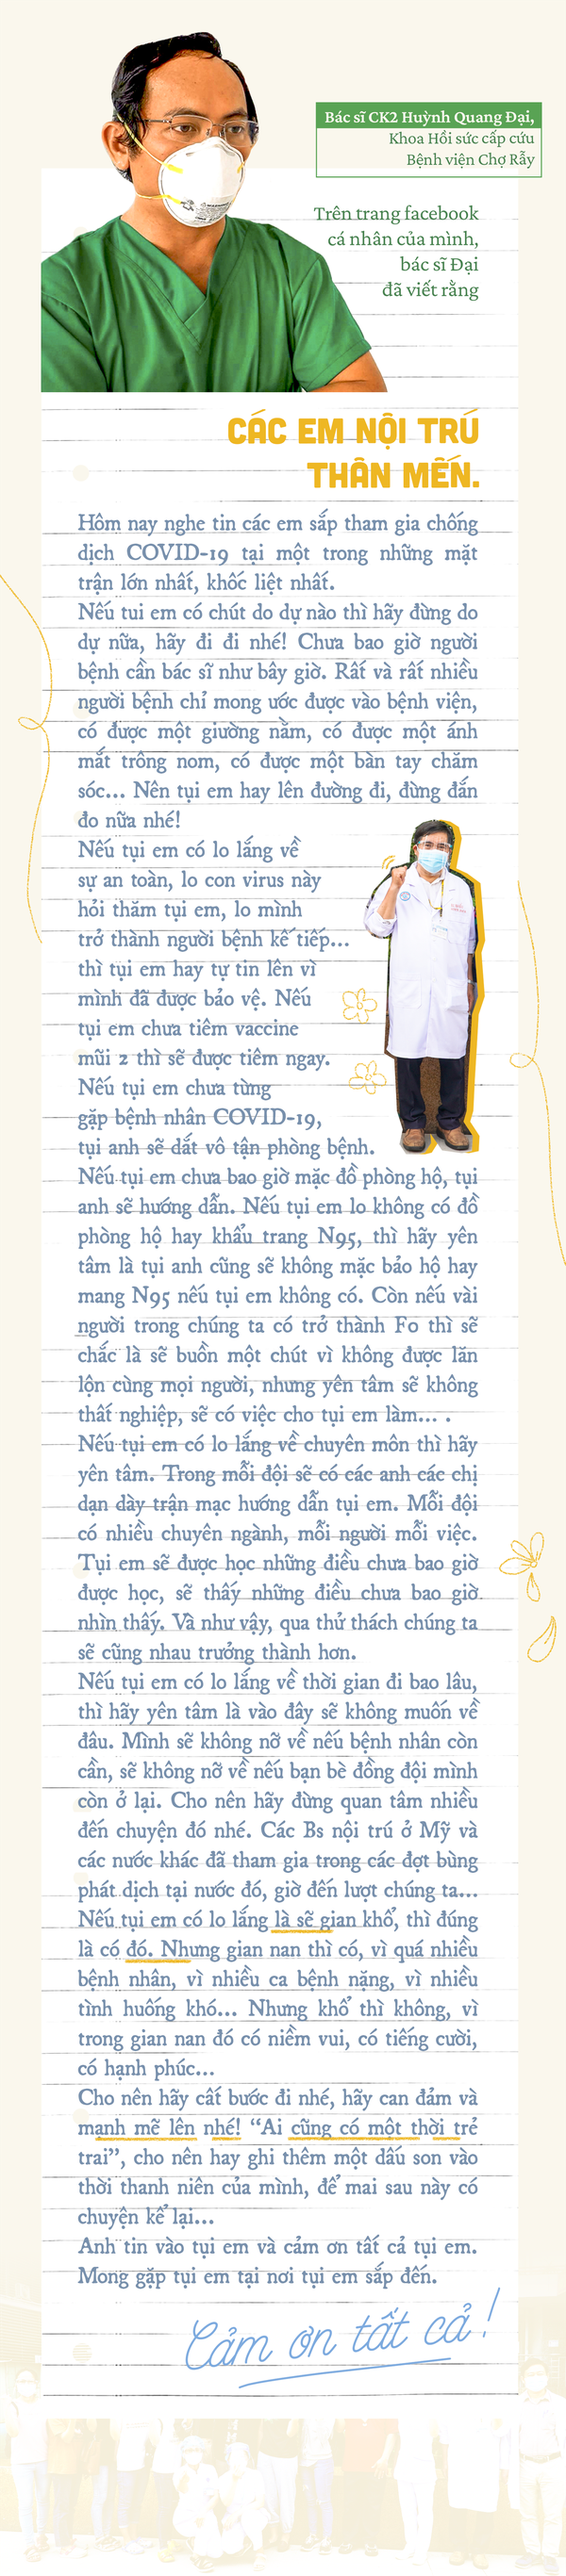 Bác sĩ CK2 Huỳnh Quang Đại,
Khoa Hồi sức cấp cứu
Bệnh viện Chợ Rẫy
Trên trang facebook
cá nhân của mình,
bác sĩ Đại
đã viết rằng
CÁC EM NỘI TRÚ
THÂN MẾN.
Hôm nay nghe tin các em sắp tham gia chống
dịch COVID-19 tại một trong những mặt
trận lớn nhất, khốc liệt nhất.
Nếu tui em có chút do dự nào thì hãy đừng do
dự nữa, hãy đi đi nhé! Chưa bao giờ người
bệnh cần bác sĩ như bây giờ. Rất và rất nhiều
người bệnh chỉ mong ước được vào bệnh viện,
có được một giường nằm, có được một ánh
mắt trông nom, có được một bàn tay chăm
sóc... Nên tụi em hay lên đường đi, đừng đắn
đo nữa nhé!
Nếu tụi em có lo lắng về
sự an toàn, lo con virus này
hỏi thăm tụi em, lo mình
trở thành người bệnh kế tiếp...
thì tụi em hay tự tin lên vì
mình đã được bảo vệ. Nếu
tụi em chưa tiêm vaccine
mũi 2 thì sẽ được tiêm ngay.
Nếu tụi em chưa từng
gặp bệnh nhân COVID-19,
tụi anh sẽ dắt vô tận phòng bệnh.
Nếu tụi em chưa bao giờ mặc đồ phòng hộ, tụi
anh sẽ hướng dẫn. Nếu tụi em lo không có đồ
phòng hộ hay khẩu trang N95, thì hãy yên
tâm là tụi anh cũng sẽ không mặc bảo hộ hay
mang N95 nếu tụi em không có. Còn nếu vài
người trong chúng ta có trở thành F0 thì sẽ
chắc là sẽ buồn một chút vì không được lăn
lộn cùng mọi người, nhưng yên tâm sẽ không
thất nghiệp, sẽ có việc cho tụi em làm... .
Nếu tụi em có lo lắng về chuyên môn thì hãy
yên tâm. Trong mỗi đội sẽ có các anh các chị
dạn dày trận mạc hướng dẫn tụi em. Mỗi đội
có nhiều chuyên ngành, mỗi người mỗi việc.
Tụi em sẽ được học những điều chưa bao giờ
được học, sẽ thấy những điều chưa bao giờ
nhìn thấy. Và như vậy, qua thử thách chúng ta
sẽ cũng nhau trưởng thành hơn.
Nếu tụi em có lo lắng về thời gian đi bao lâu,
thì hãy yên tâm là vào đây sẽ không muốn về
đâu. Mình sẽ không nỡ về nếu bệnh nhân còn
cần, sẽ không nỡ về nếu bạn bè đồng đội mình
còn ở lại. Cho nên hãy đừng quan tâm nhiều
đến chuyện đó nhé. Các Bs nội trú ở Mỹ và
các nước khác đã tham gia trong các đợt bùng
phát dịch tại nước đó, giờ đến lượt chúng ta...
Nếu tụi em có lo lắng là sẽ gian khổ, thì đúng
là có đó. Nhưng gian nan thì có, vì quá nhiều
bệnh nhân, vì nhiều ca bệnh nặng, vì nhiều
tình huống khó... Nhưng khổ thì không, vì
trong gian nan đó có niềm vui, có tiếng cười,
có hạnh phúc...
Cho nên hãy cất bước đi nhé, hãy can đảm và
mạnh mẽ lên nhé! “Ai cũng có một thời trẻ
trai”, cho nên hay ghi thêm một dấu son vào
thời thanh niên của mình, để mai sau này có
chuyện kể lại...
Anh tin vào tụi em và cảm ơn tất cả tụi em.
Mong gặp tụi em tại nơi tụi em sắp đến.
Cảm ơn tất cả!